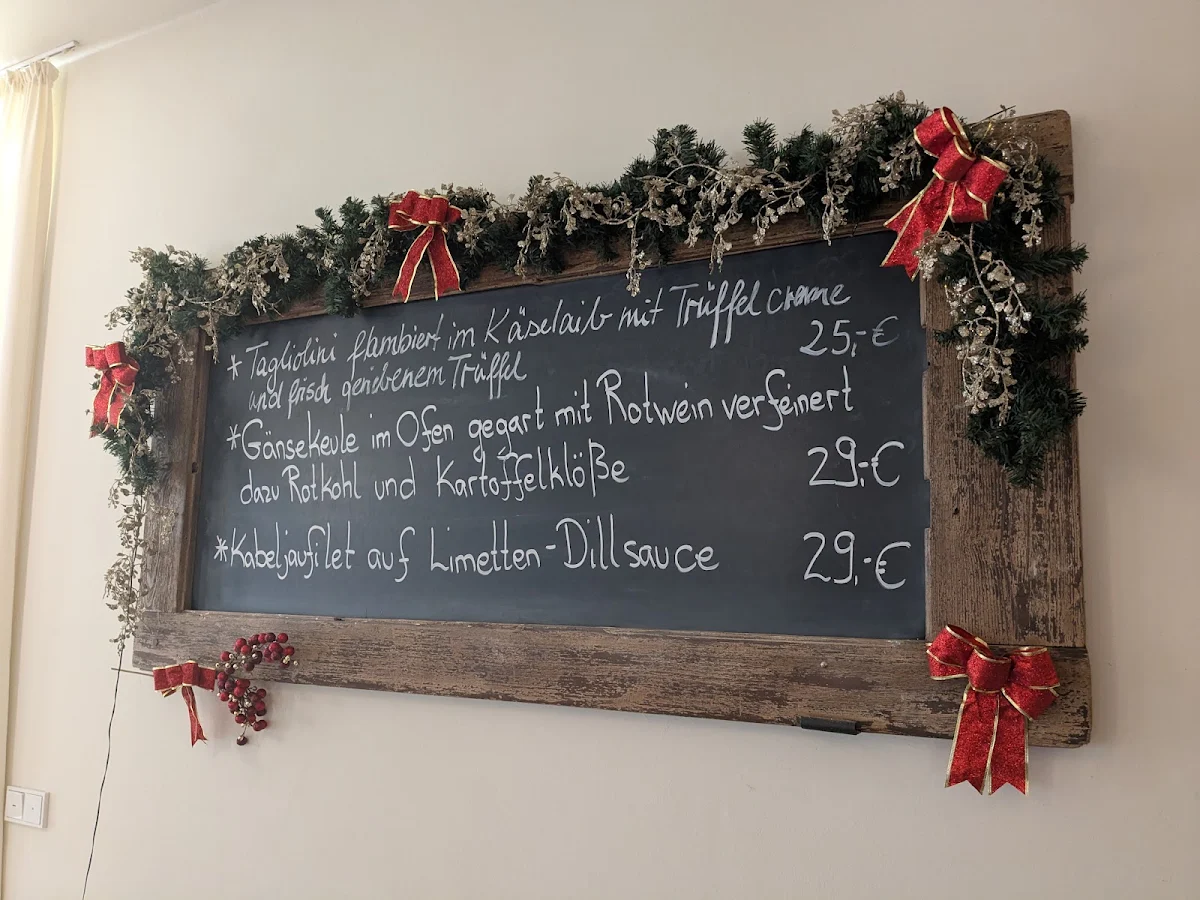 * Tagliolini flambiert im Käselaib mit Trüffelcreme
25,-€
und frisch geriebenem Trüffel
* Gänsekeule im Ofen gegart mit Rotwein verfeinert
dazu Rotkohl und Kartoffelklöße 29,-€
* Kabeljaufilet auf Limetten-Dillsauce 29,-€